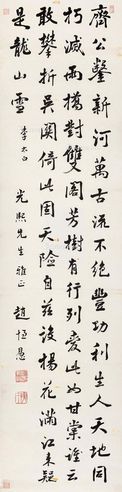 齊公鑿新河萬古流不絕豐功利生人天地同
朽滅兩橋對雙閣芳樹有行列愛此如甘棠誰云
敢攀折吳關倚此固天險自茲設楊花滿江來疑
是龍山雪 李太白 光熙先生雅正 趙恒惖